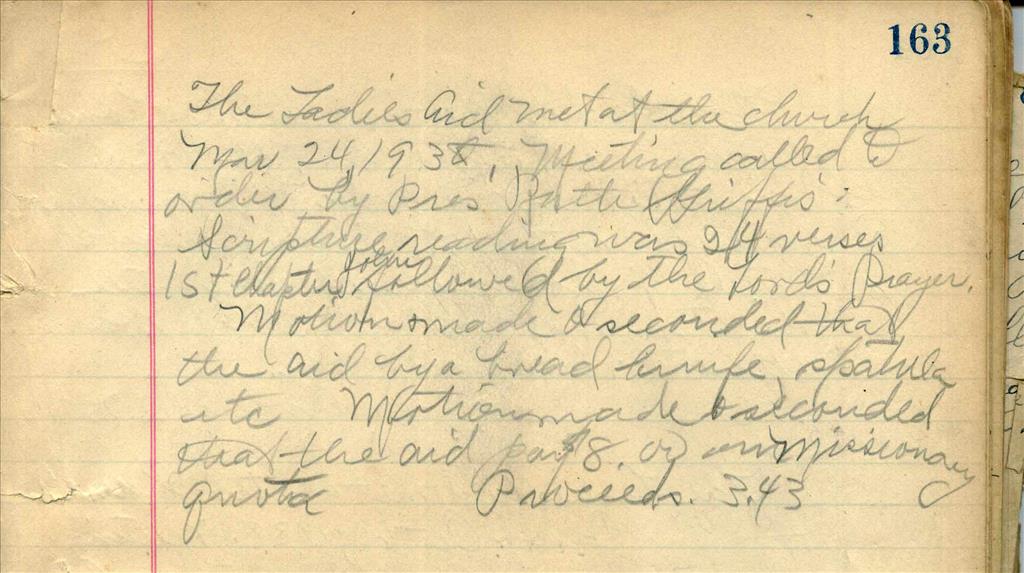 163
The Ladies Aid met at the church
Mar 24, 1938, Meeting called to
order by Pres Griffis.
Scripture reading was 24 verses
1st Chapter John followed by the Lord's Prayer.
Motion made & seconded that
the aid by a bread knife, spatula
etc Motion made & seconded
that the aid pay $8. on missionary
quota Proceeds. 3.43